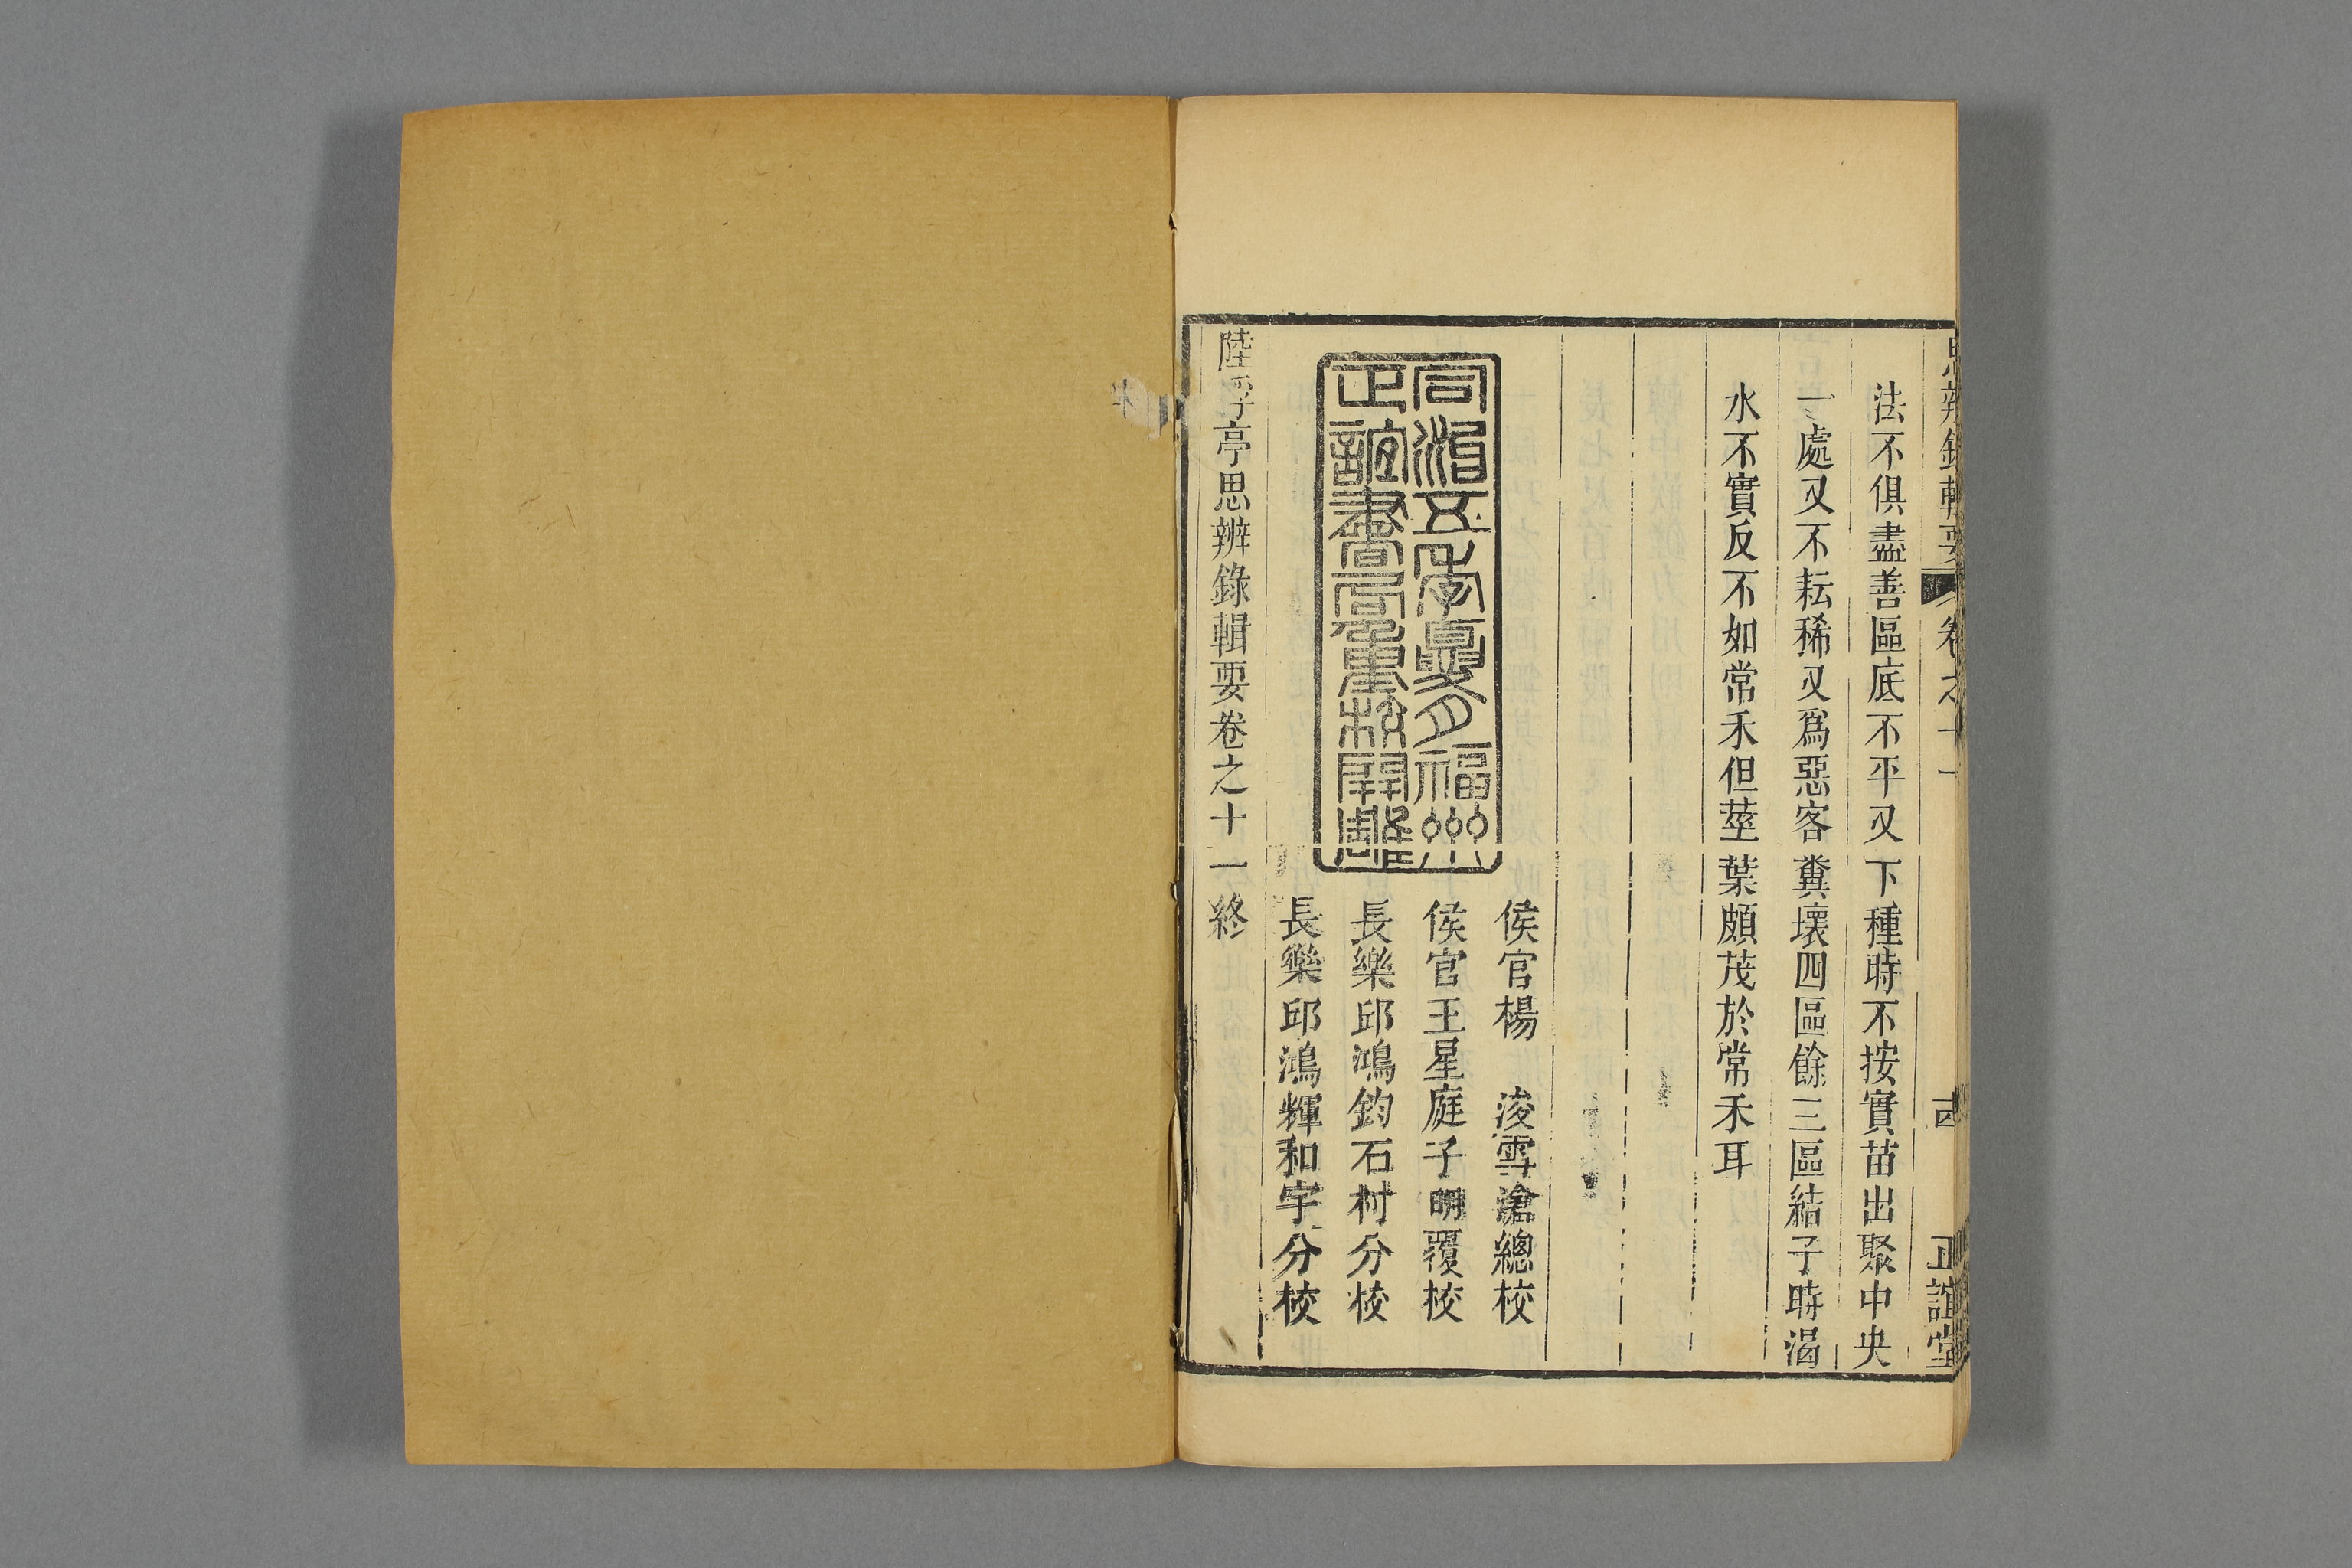 思辨錄輯要 卷之十一 古 正誼堂
法不俱盡善區底不平又下種時不按實苗出聚中央
一處又不耘稀又爲惡客糞壞四區餘三區結子時渴
水不實反不如常禾但莖葉頗茂於常禾耳
侯官楊 浚雪滄總校
侯官王星庭子明覆校
長樂邱鴻鈞石村分校
長樂邱鴻輝和宇分校
同治五年夏月福州
正誼書局重校開雕
陸桴亭思辨錄輯要卷之十一終